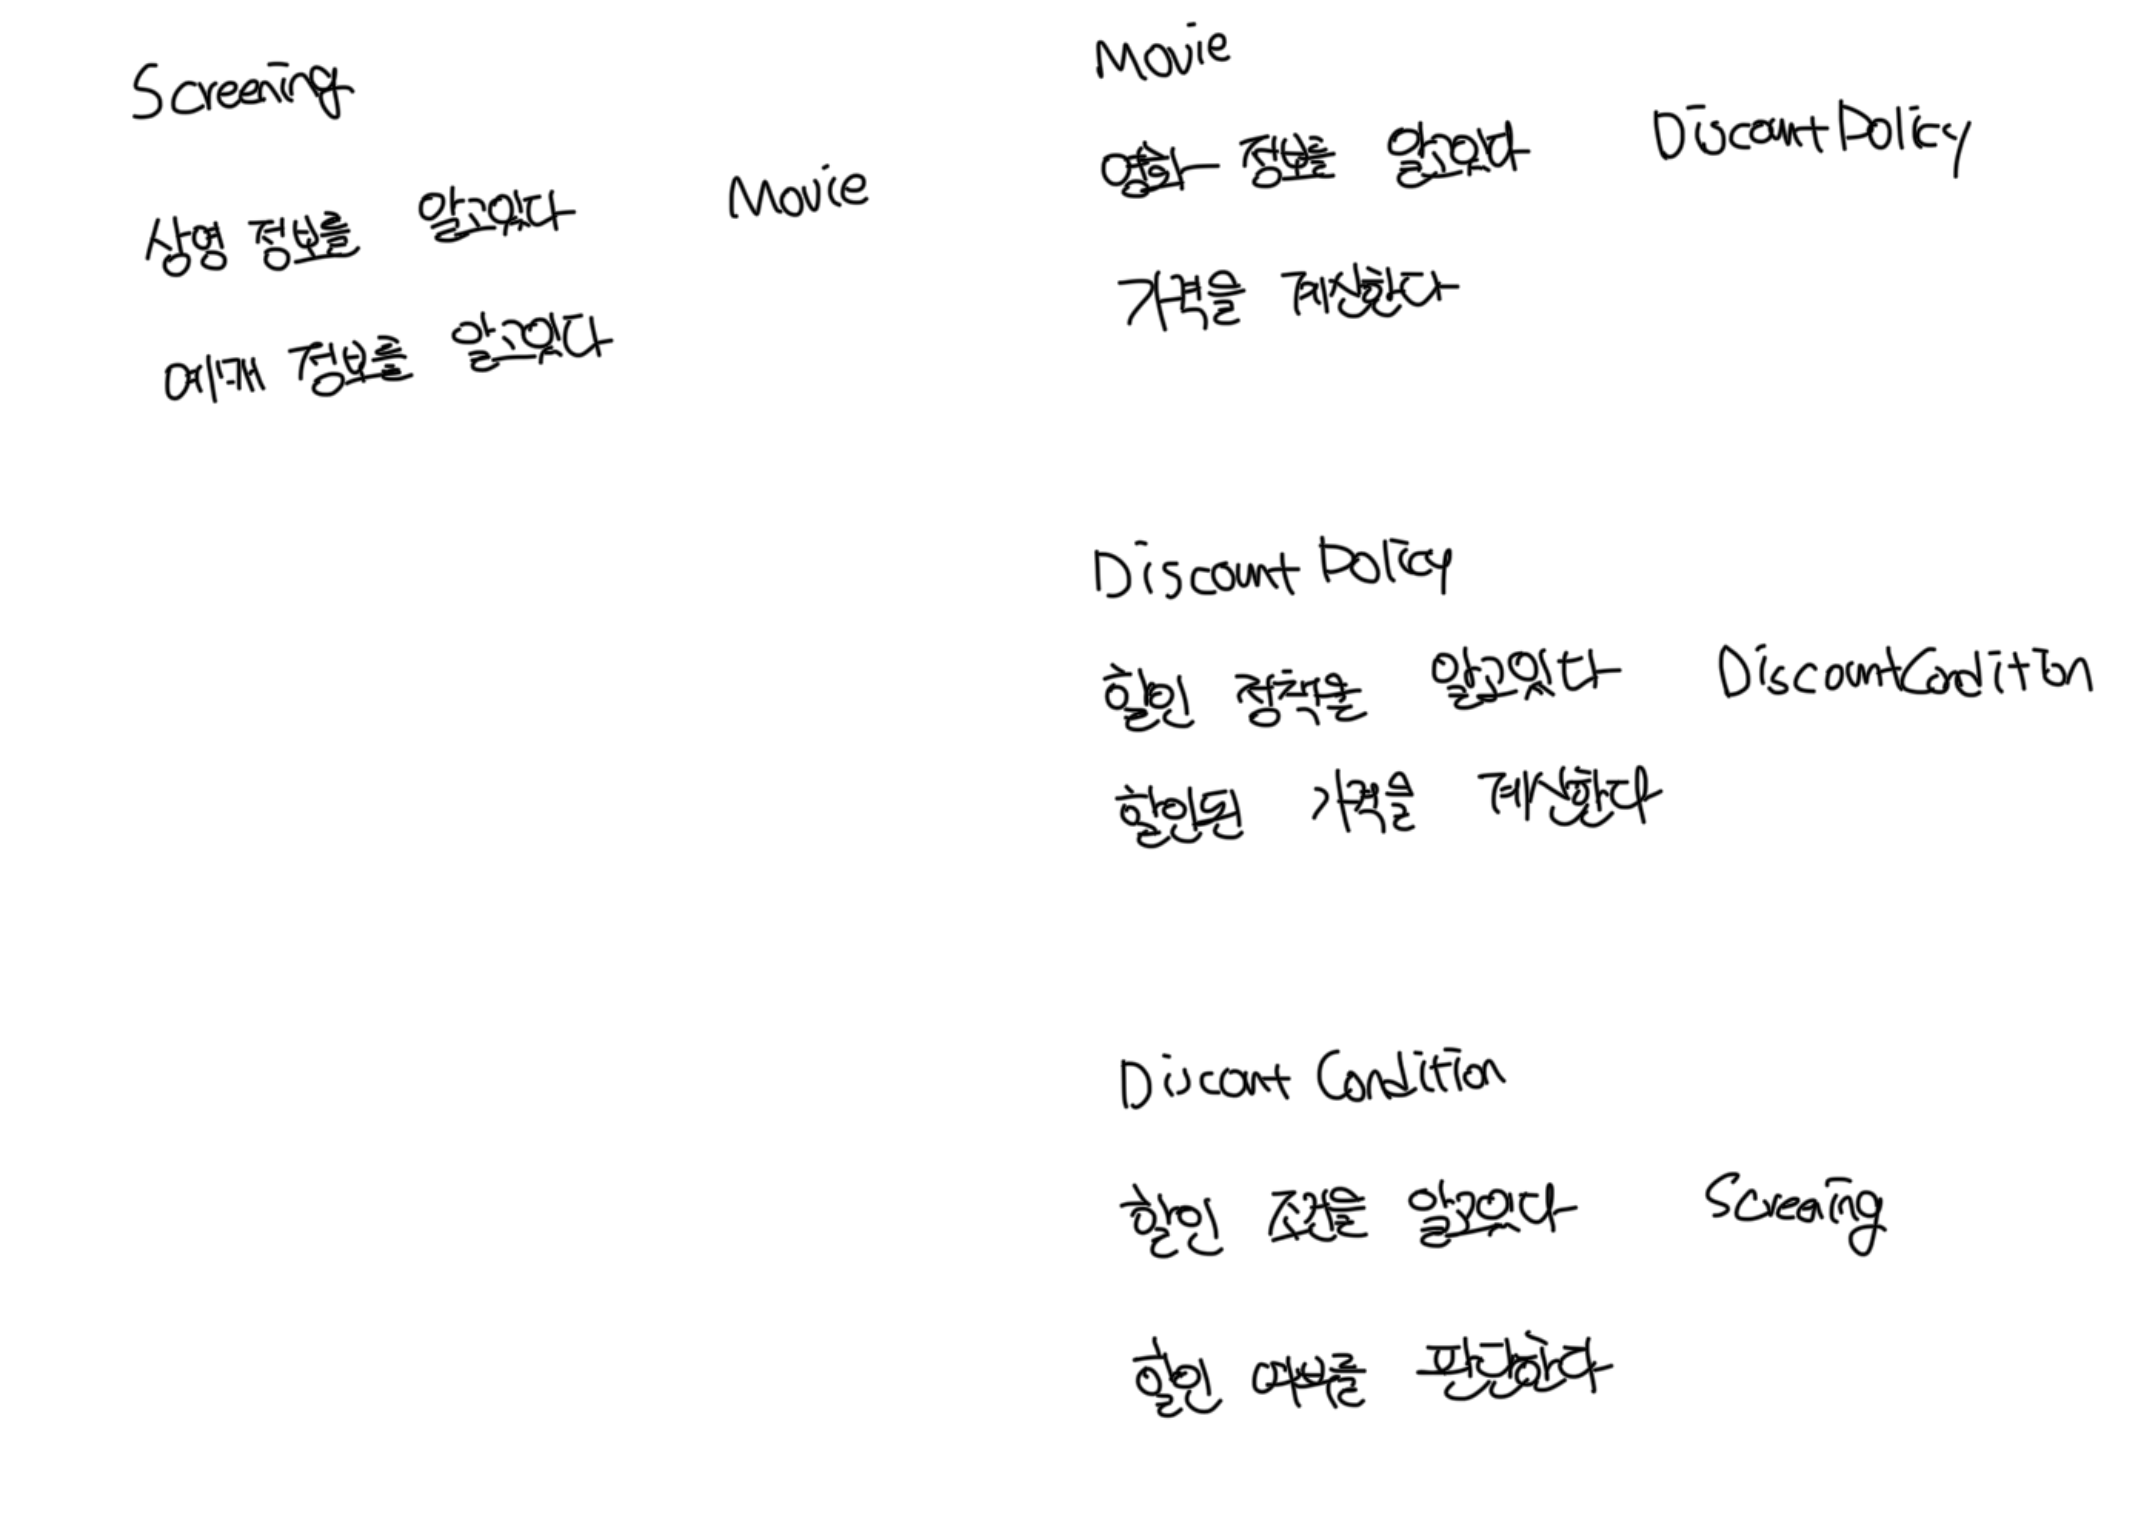 Screening
상영 정보를 알고있다 Movie
예매 정보를 알고있다
Movie
영화 정보를 알고있다 DiscountPolicy
가격을 계산한다
Discount Policy
할인 정책을 알고있다 DiscountCondition
할인된 가격을 계산한다
Discount Condition
할인 조건을 알고있다 Screening
할인 여부를 판단한다